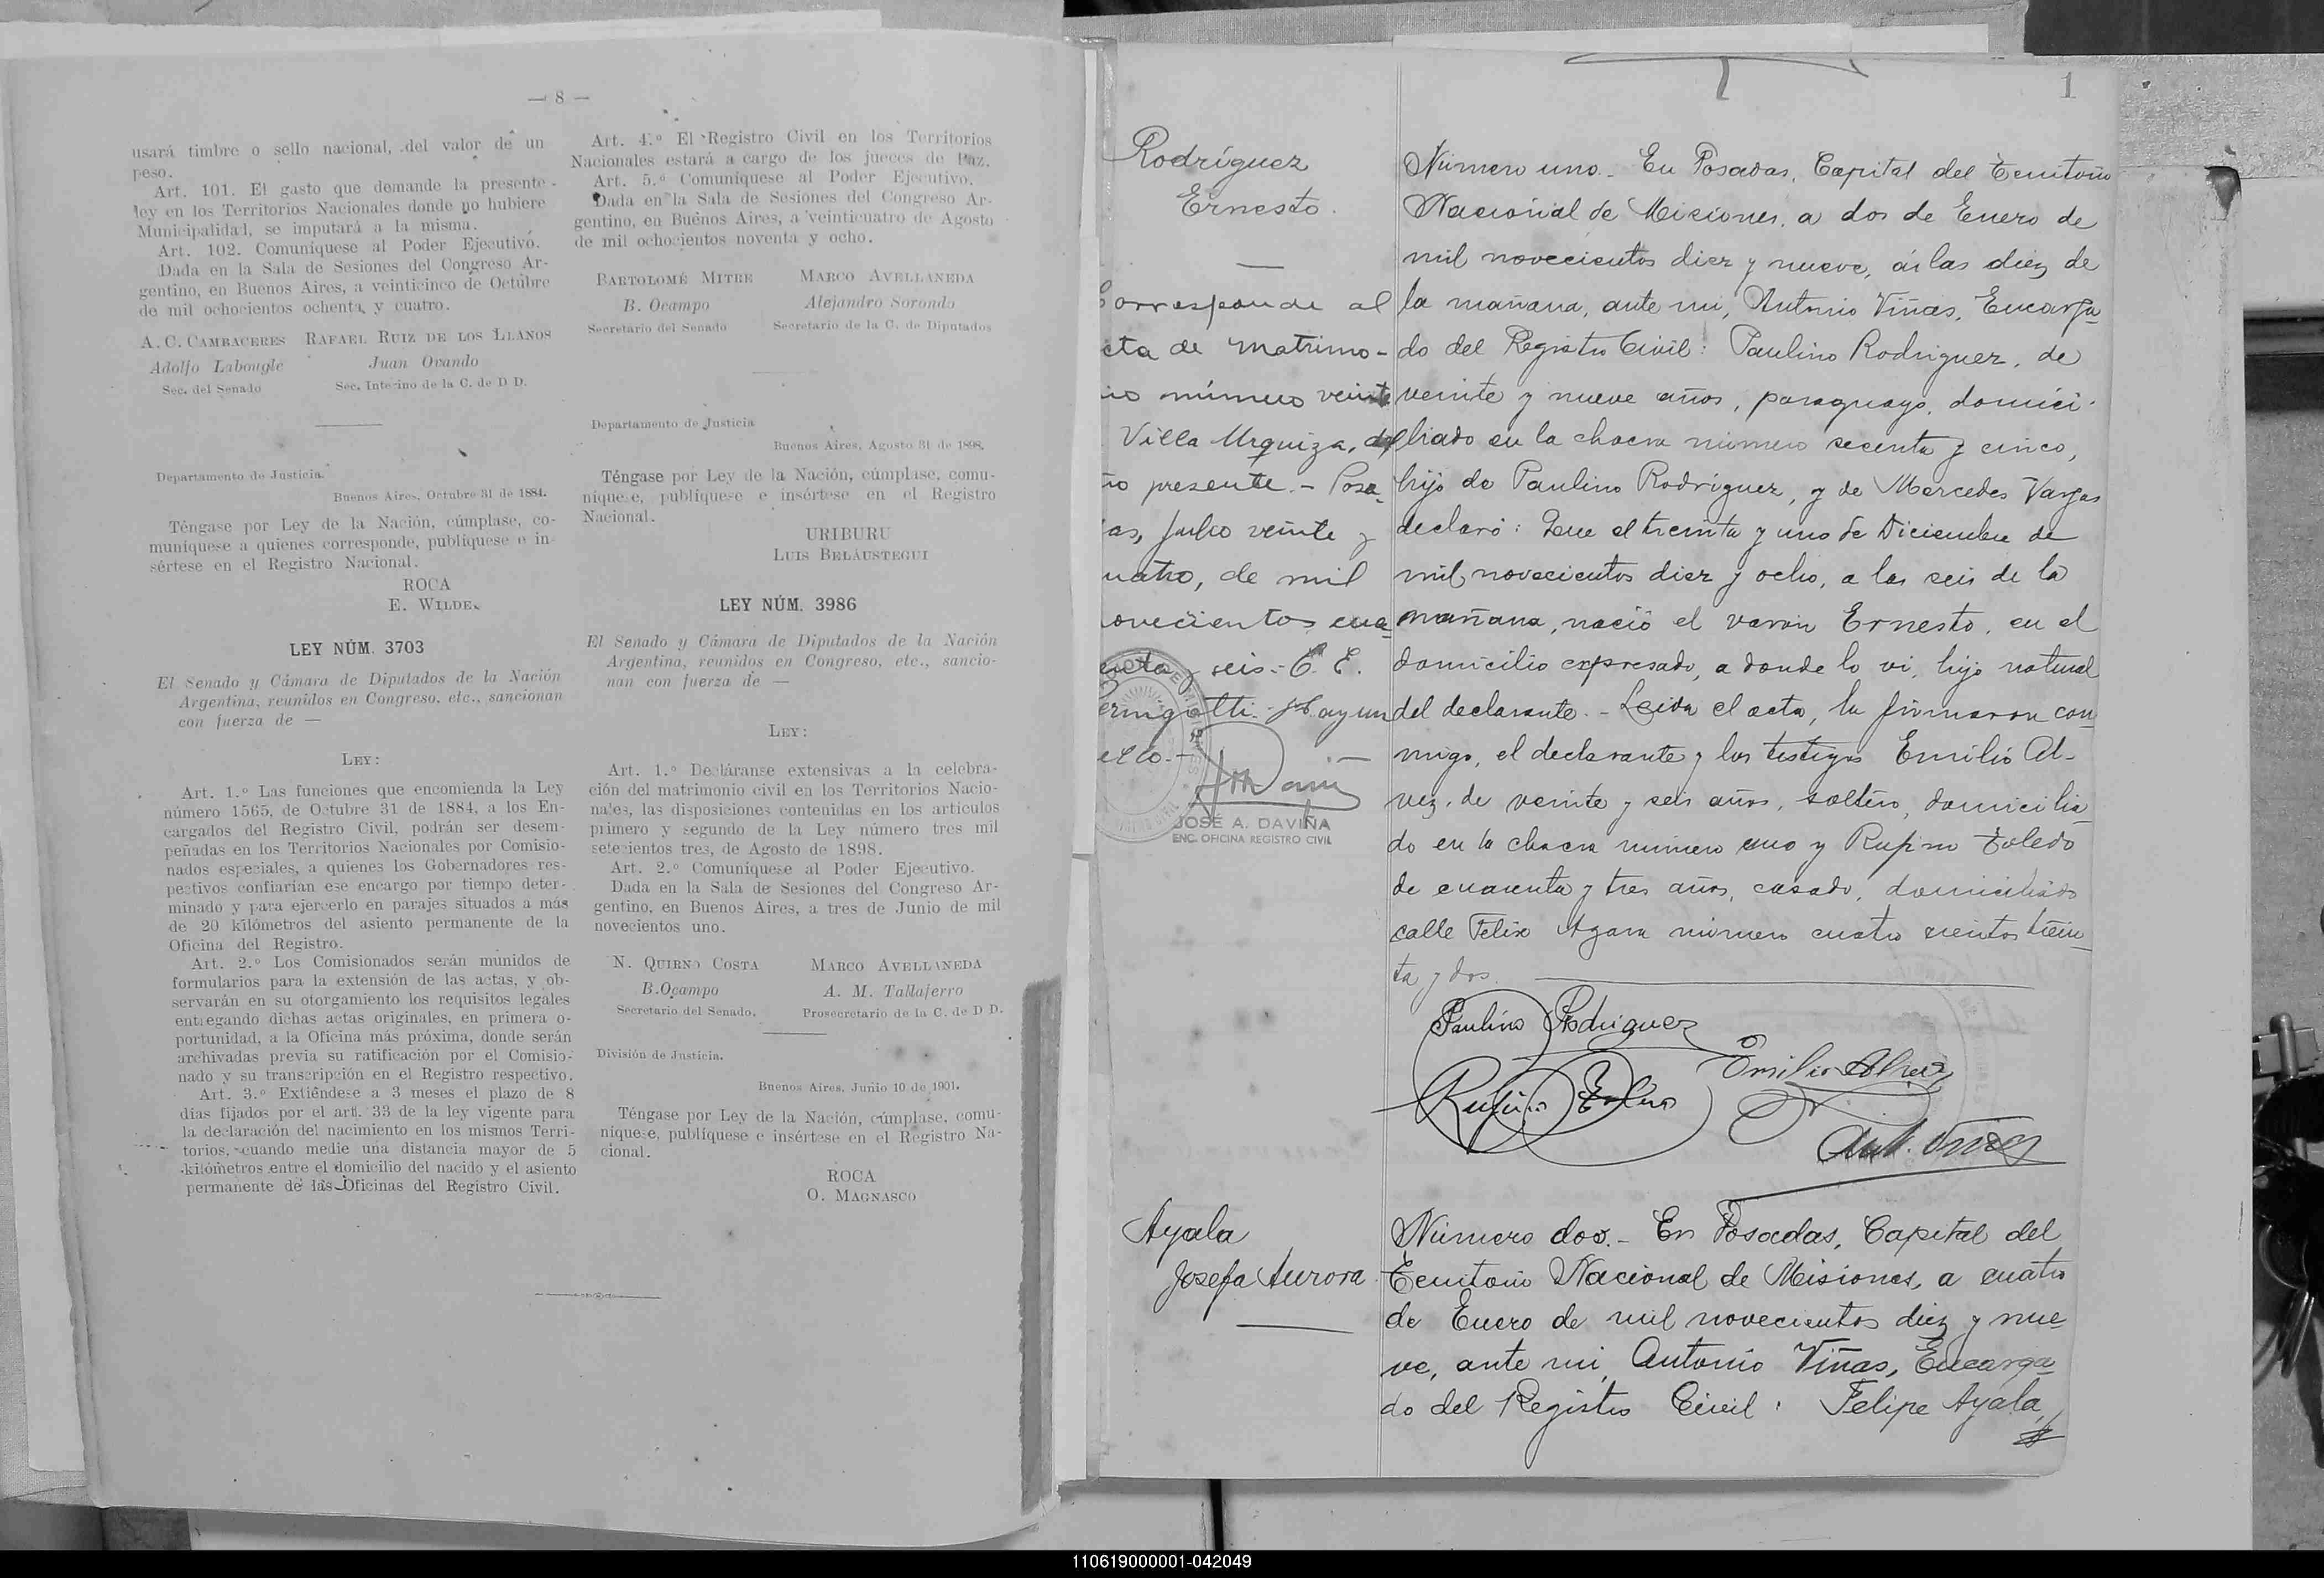 — 8 —
usará timbre o sello nacional, del valor de un
peso.
Art. 101. El gasto que demande la presente
ley en los Territorios Nacionales donde no hubiere
Municipalidad, se imputará a la misma.
Art. 102. Comuníquese al Poder Ejecutivo.
Dada en la Sala de Sesiones del Congreso Ar-
gentino, en Buenos Aires, a veinticinco de Octubre
de mil ochocientos ochenta y cuatro.
A. C. CAMBACERES RAFAEL RUIZ DE LOS LLANOS
Adolfo Labougle Juan Ovando
Sec. del Senado Sec. Interino de la C. de D D.
Departamento de Justicia.
Buenos Aires, Octubre 31 de 1884.
Téngase por Ley de la Nación, cúmplase, co-
muníquese a quienes corresponde, publíquese e in-
sértese en el Registro Nacional.
ROCA
E. WILDE.
LEY NÚM. 3703
El Senado y Cámara de Diputados de la Nación
Argentina, reunidos en Congreso, etc., sancionan
con fuerza de —
LEY:
Art. 1.º Las funciones que encomienda la Ley
número 1565, de Octubre 31 de 1884, a los En-
cargados del Registro Civil, podrán ser desem-
peñadas en los Territorios Nacionales por Comisio-
nados especiales, a quienes los Gobernadores res-
pectivos confiarían ese encargo por tiempo deter-
minado y para ejercerlo en parajes situados a más
de 20 kilómetros del asiento permanente de la
Oficina del Registro.
Art. 2.º Los Comisionados serán munidos de
formularios para la extensión de las actas, y ob-
servarán en su otorgamiento los requisitos legales
entregando dichas actas originales, en primera o-
portunidad, a la Oficina más próxima, donde serán
archivadas previa su ratificación por el Comisio-
nado y su transcripción en el Registro respectivo.
Art. 3.º Extiéndese a 3 meses el plazo de 8
días fijados por el art. 33 de la ley vigente para
la declaración del nacimiento en los mismos Terri-
torios, cuando medie una distancia mayor de 5
kilómetros entre el domicilio del nacido y el asiento
permanente de las Oficinas del Registro Civil.
Art. 4.º El Registro Civil en los Territorios
Nacionales estará a cargo de los jueces de Paz.
Art. 5.º Comuníquese al Poder Ejecutivo.
Dada en la Sala de Sesiones del Congreso Ar-
gentino, en Buenos Aires, a veinticuatro de Agosto
de mil ochocientos noventa y ocho.
BARTOLOMÉ MITRE MARCO AVELLANEDA
B. Ocampo Alejandro Sorondo
Secretario del Senado Secretario de la C. de Diputados
Departamento de Justicia
Buenos Aires, Agosto 31 de 1898.
Téngase por Ley de la Nación, cúmplase, comu-
níquese, publíquese e insértese en el Registro
Nacional.
URIBURU
LUIS BELÁUSTEGUI
LEY NÚM. 3986
El Senado y Cámara de Diputados de la Nación
Argentina, reunidos en Congreso, etc., sancio-
nan con fuerza de —
LEY:
Art. 1.º Decláranse extensivas a la celebra-
ción del matrimonio civil en los Territorios Nacio-
nales, las disposiciones contenidas en los artículos
primero y segundo de la Ley número tres mil
setecientos tres, de Agosto de 1898.
Art. 2.º Comuníquese al Poder Ejecutivo.
Dada en la Sala de Sesiones del Congreso Ar-
gentino, en Buenos Aires, a tres de Junio de mil
novecientos uno.
N. QUIRNO COSTA MARCO AVELLANEDA
B. Ocampo A. M. Tallaferro
Secretario del Senado. Prosecretario de la C. de D D.
División de Justicia.
Buenos Aires, Junio 10 de 1901.
Téngase por Ley de la Nación, cúmplase, comu-
níquese, publíquese e insértese en el Registro Na-
cional.
ROCA
O. MAGNASCO
1
Rodríguez
Ernesto.
Corresponde al
cta de matrimo-
io número veinte
Villa Urquiza, del
ño presente. - Posa-
as, Julio veinte y
uatro, de mil
ovecientos cua-
enta y seis.- C. E.
JOSÉ A. DAVIÑA
ENC. OFICINA REGISTRO CIVIL
Número uno.- En Posadas, Capital del Territorio
Nacional de Misiones, a dos de Enero de
mil novecientos diez y nueve, á las diez de
la mañana, ante mi, Antonio Viñas, Encarga-
do del Registro Civil: Paulino Rodriguez, de
veinte y nueve años, paraguayo, domici-
liado en la chacra número secenta y cinco,
hijo de Paulino Rodriguez, y de Mercedes Vargas
declaró: Que el treinta y uno de Diciembre de
mil novecientos diez y ocho, a las seis de la
mañana, nació el varón Ernesto, en el
domicilio expresado, a donde lo vi, hijo natural
del declarante. - Leida el acta, la firmaron con-
migo, el declarante y los testigos Emilio Al-
vez, de veinte y seis años, soltero, domicilia-
do en la chacra número uno y Rufino Toledo
de cuarenta y tres años, casado, domiciliado
calle Felix Azara número cuatro cientos trein-
ta y dos.
Paulino Rodriguez
Emilio Alvez
Rufino Toledo
Ant. Viñas
Ayala
Josefa Aurora.
Número dos.- En Posadas, Capital del
Territorio Nacional de Misiones, a cuatro
de Enero de mil novecientos diez y nue-
ve, ante mi, Antonio Viñas, Encarga-
do del Registro Civil: Felipe Ayala,
110619000001-042049